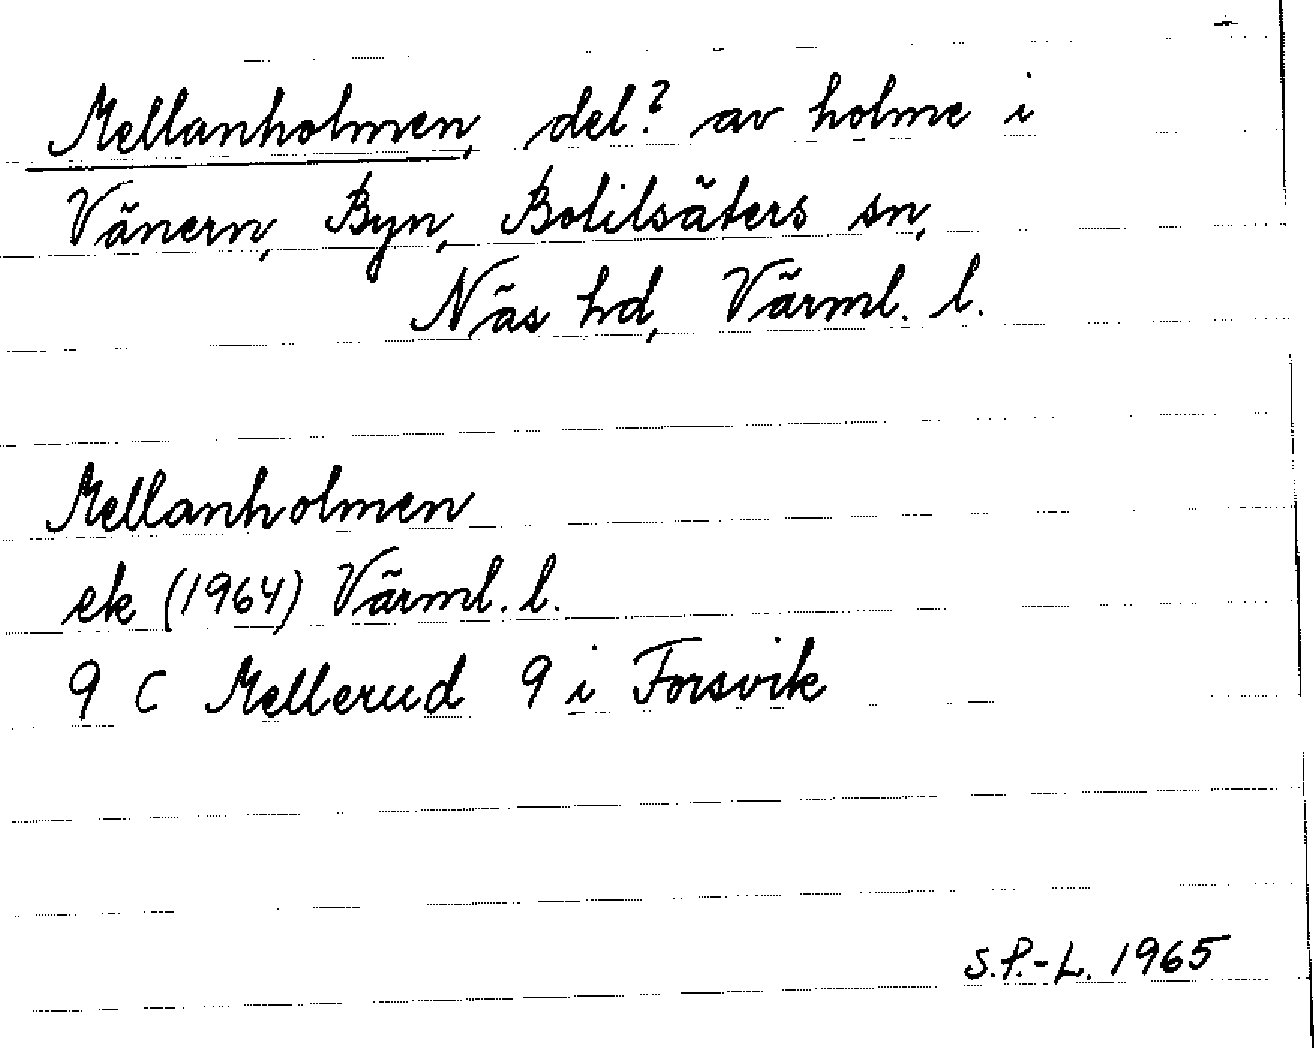 Mellanholmen, del? av holme i
Vänern, Byn, Botilsäters sn,
Näs hd, Värml. l.
Mellanholmen
ek (1964) Värml. l.
9 C Mellerud 9 i Forsvik
S.P.-L. 1965